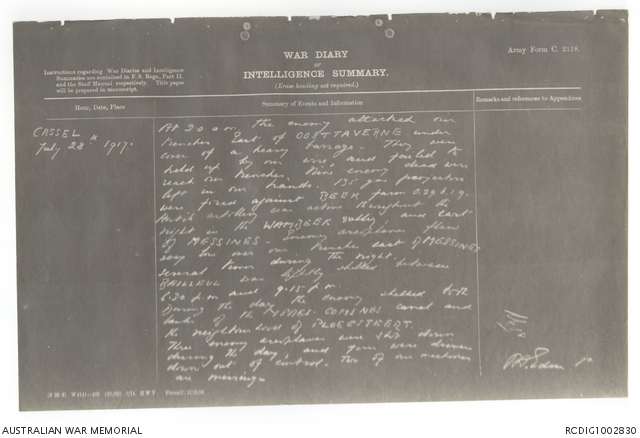 WAR DIARY
or
INTELLIGENCE SUMMARY.
(Erase heading not required.)
Army Form C. 2118.
Instructions regarding War Diaries and Intelligence
Summaries are contained in F.S. Regs., Part II.
and the Staff Manual respectively. Title pages
will be prepared in manuscript.
Hour, Date, Place
Summary of Events and Information
Remarks and references to Appendices
CASSEL
July 28th 1917.
At 3.0 a.m. the enemy attacked our
trenches East of OOSTTAVERNE under
cover of a heavy barrage. They were
held up by our wire and failed to
reach our trenches. Nine enemy dead were
left in our hands. 135 gas projectors
were fired against BEEK farm
Hostile artillery was active throughout the
night in the WAMBEEK valley and East
of MESSINES. Enemy aeroplanes flew
very low over our trenches east of MESSINES
several times during the night.
BAILLEUL was shelled between
6.30 p.m. and 9.15 p.m.
During the day the enemy shelled both
banks of the YPRES-COMINES canal and
the neighbourhood of PLOEGSTEERT.
Three enemy aeroplanes were shot down
during the day and four were driven
down out of control. Two of our machines
are missing.
AUSTRALIAN WAR MEMORIAL
RCDIG1002830